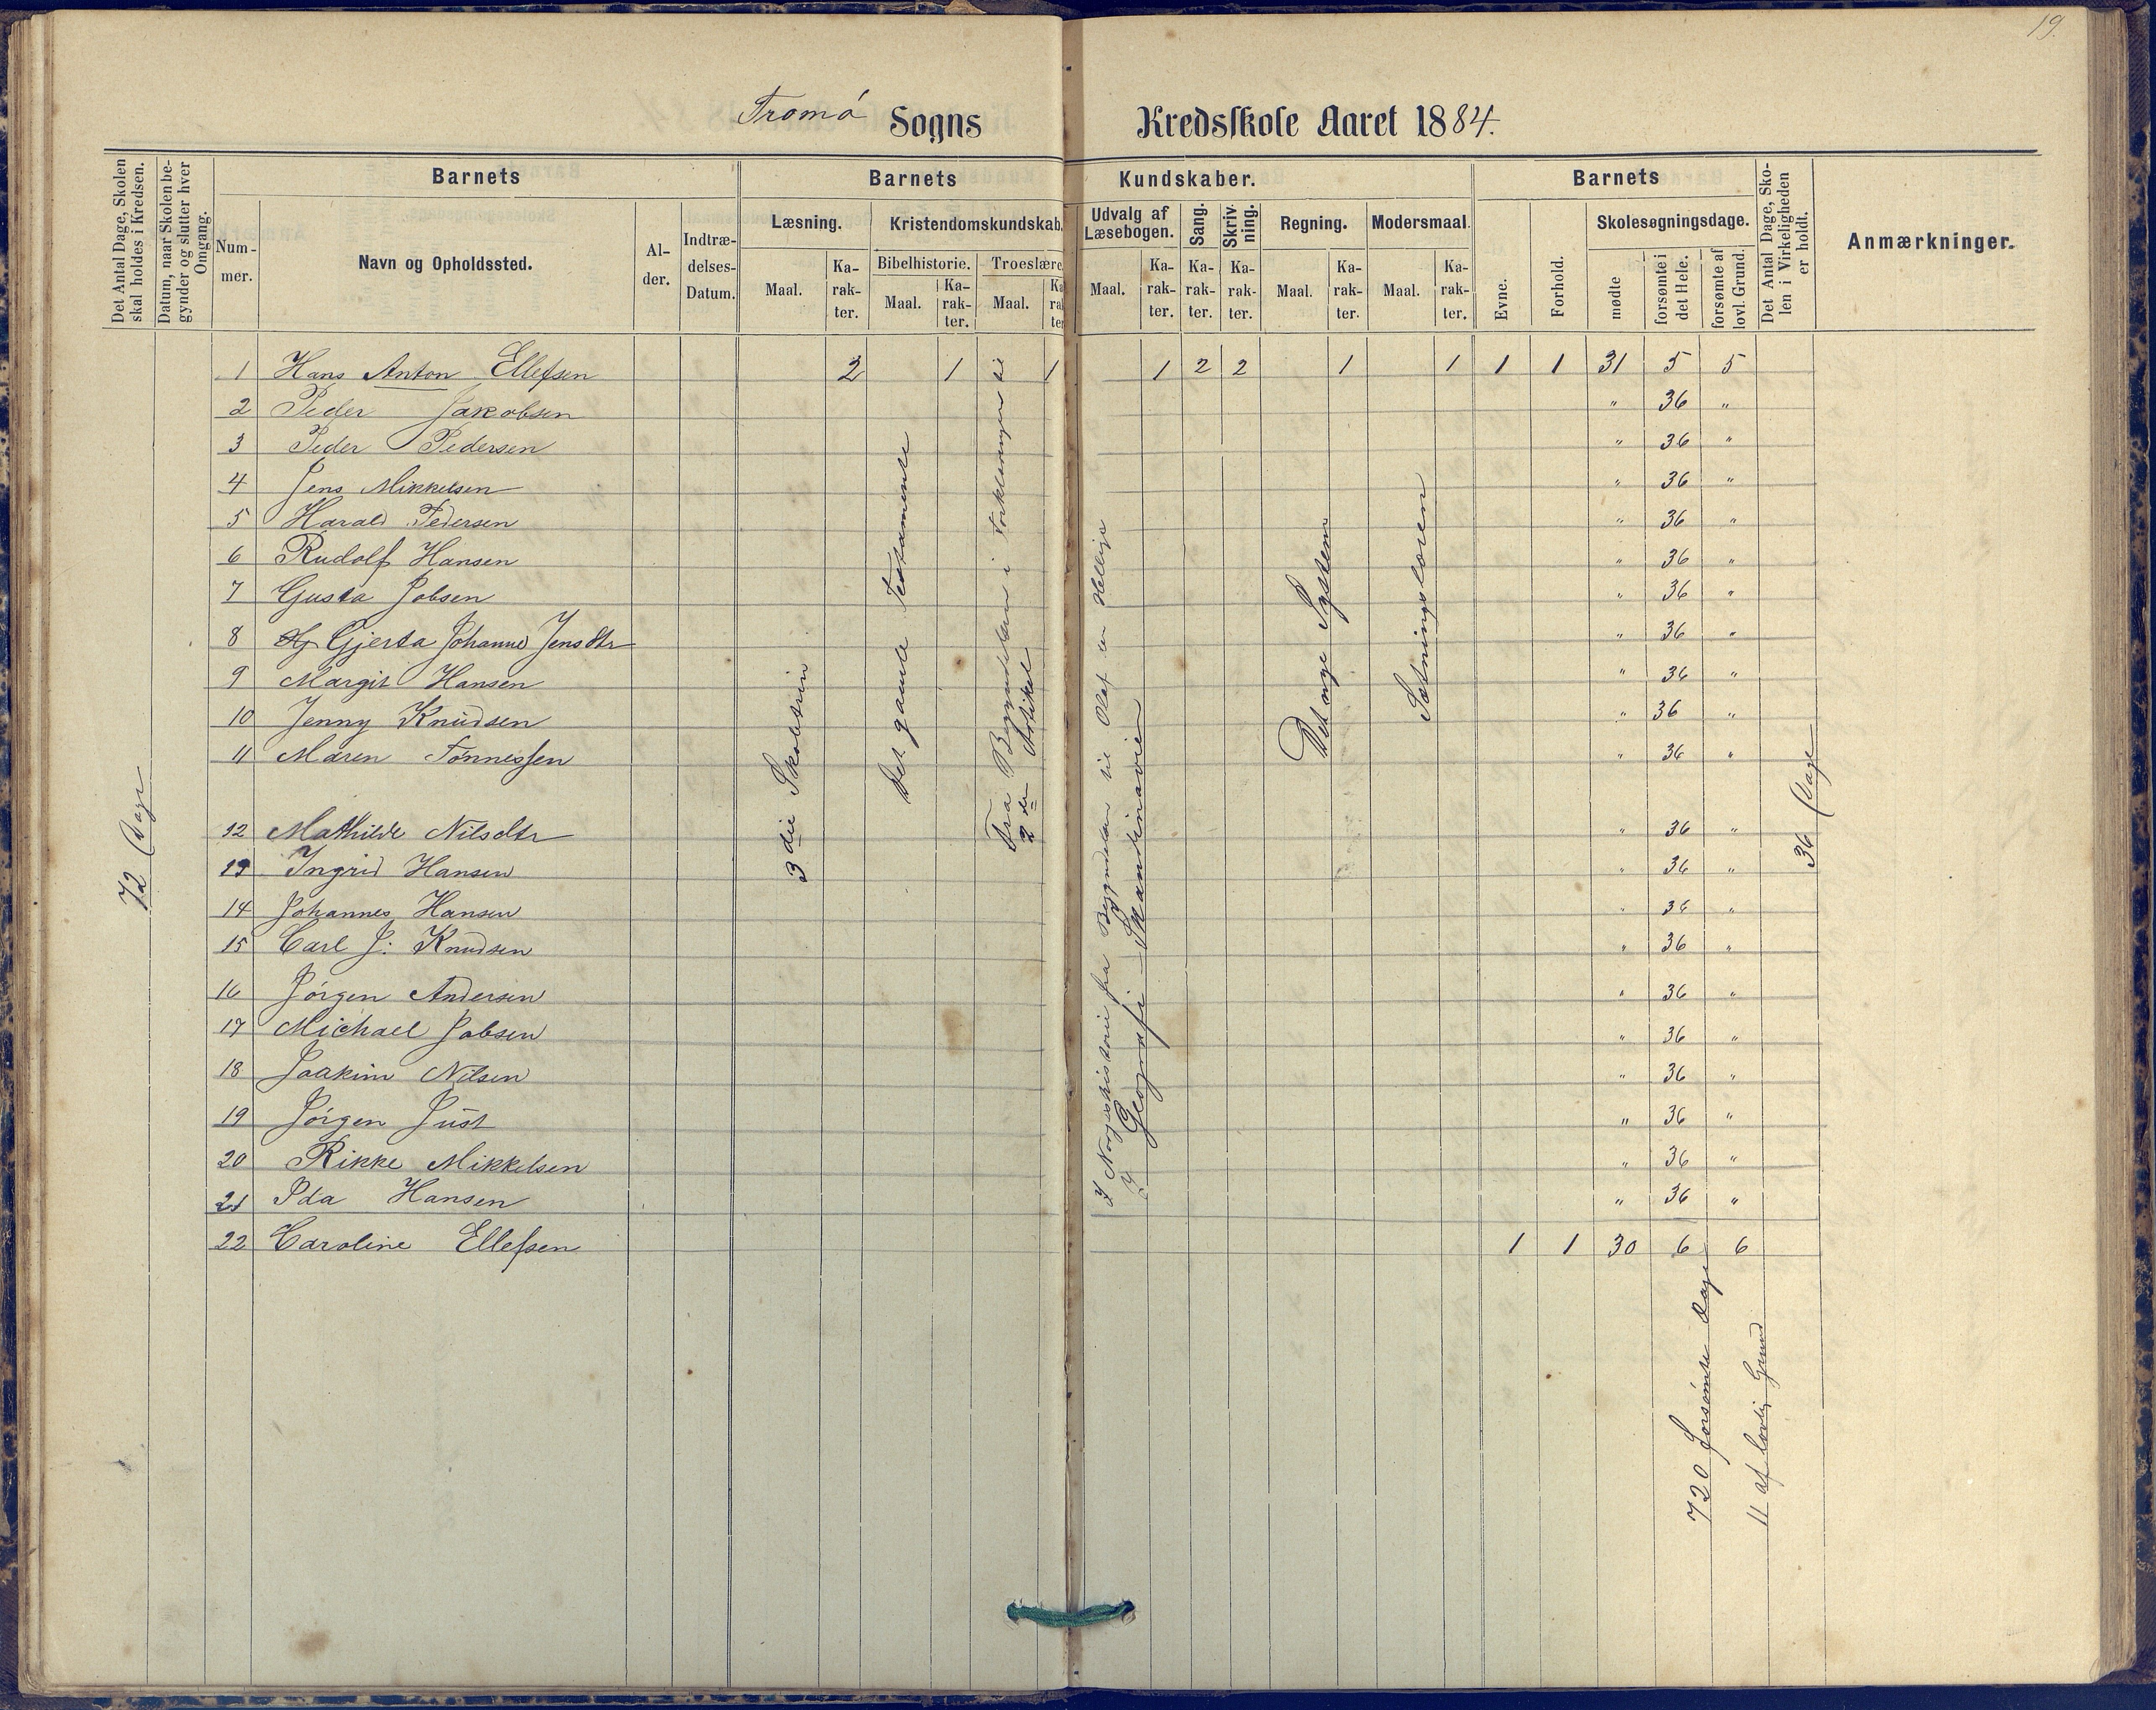 19.
Tromø Sogns Kredsskole Aaret 1884.
Det Antal Dage, Skolen skal holdes i Kredsen.
Datum, naar Skolen begynder og slutter hver Omgang.
Barnets
Nummer.
Navn og Opholdssted.
Alder.
Indtrædelses-Datum.
Barnets Kundskaber.
Læsning.
Maal.
Karakter.
Kristendomskundskab.
Bibelhistorie.
Maal.
Karakter.
Troeslære.
Maal.
Udvalg af Læsebogen.
Maal.
Karakter.
Sang.
Karakter.
Skrivning.
Karakter.
Regning.
Maal.
Karakter.
Modersmaal.
Maal.
Karakter.
Barnets
Evne.
Forhold.
Skolesøgningsdage.
mødte
forsømte i det Hele.
forsømte af lovl. Grund.
Det Antal Dage, Skolen i Virkeligheden er holdt.
Anmærkninger.
1 Hans Anton Ellefsen 2 1 1 1 2 2 1 1 1 1 31 5 5
2 Peder Jakobsen " 36 "
3 Peder Pedersen " 36 "
4 Jens Mikkelsen " 36 "
5 Harald Pedersen " 36 "
6 Rudolf Hansen " 36 "
7 Gusta Jobsen " 36 "
8 Gjerta Johanne Jensdtr " 36 "
9 Margit Hansen " 36 "
10 Jenny Knudsen " 36 "
11 Maren Tønnessen " 36 "
12 Mathilde Nilsdtr " 36 "
13 Ingrid Hansen " 36 "
14 Johannes Hansen " 36 "
15 Carl J. Knudsen " 36 "
16 Jørgen Andersen " 36 "
17 Michael Jobsen " 36 "
18 Joakim Nilsen " 36 "
19 Jørgen Just " 36 "
20 Rikke Mikkelsen " 36 "
21 Ida Hansen " 36 "
22 Caroline Ellefsen 1 1 30 6 6
72 Dage
3die Skoletrin
Det gamle Testamente
Fra Begyndelsen i Forklaringen til
2den Artikel
I Norgeshistorie fra Begyndelsen til Olaf en Hellige
I Geografi Skandinavien
Det nye System
Sætningslæren
36 Dage
720 forsømte Dage
11 af lovlig Grund